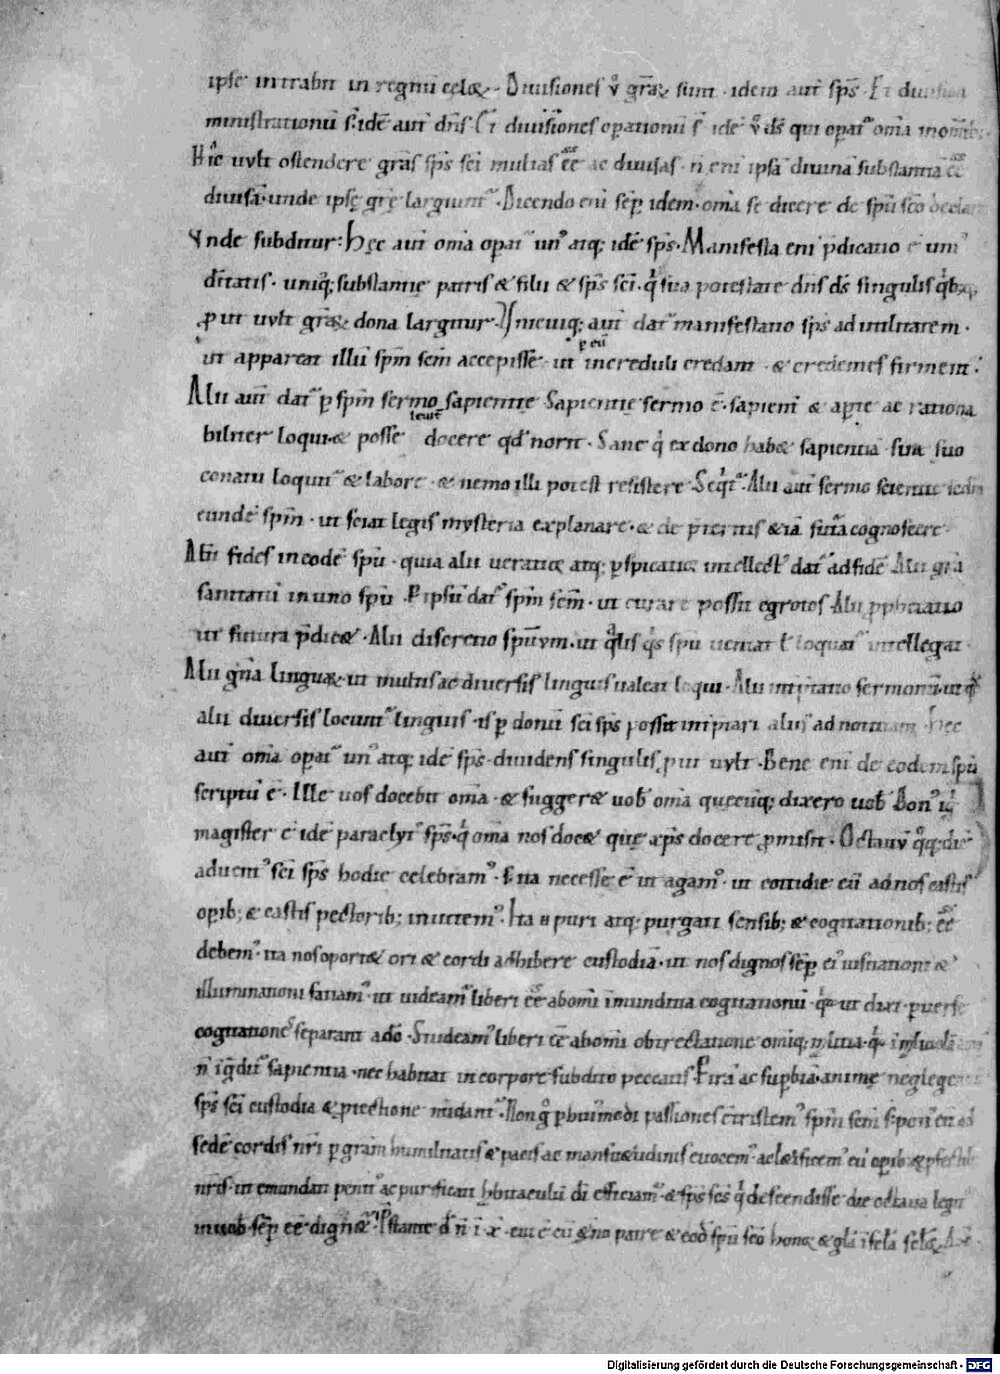 ipse intrabit in regnū celoꝝ. Diuisiones ū gr̄aꝝ sunt. idem aut̄ sp̄s. Et diuisiones
ministrationū s̄. idē aut̄ dn̄s. Et diuisiones oꝑationū s̄. idē ū ds̄ qui oꝑat᷑ om̄ia in om̄ib;
Hic uult ostendere gr̄as sp̄s sc̄i multas ēē ac diuisas. n̄ eni ipsā diuinā substantiā ēē
diuisā. unde ipsę grę largiunt᷑. Dicendo eni semꝑ idem. om̄ia se dicere de sp̄u sc̄o
Vnde subditur: Hęc aut̄ om̄ia oꝑat᷑ un᷒ atq; idē sp̄s. Manifesta eni p̄dicatio ē uni᷒
dēitatis. uniq; substantię patris & filii & sp̄s sc̄i. q̄ sua potestate dn̄s ds̄ singulis
ꝓut uult gr̄aꝝ dona largitur. Unicuiq; aut̄ dat᷑ manifestatio sp̄s ad utilitatem.
ut appareat illū sp̄m sc̄m accepisse. ut ꝑ eū increduli credant. & credentes firment᷑.
Alii aut̄ dat᷑ ꝑ sp̄m sermo sapientię. Sapientię sermo ē. sapient̄ & aperte ac rationa
biliter loqui. & posse leuit̄ docere qd̄ norit. Sane q̄ ex dono hab& sapientiā. sine suo
conatu loquit᷑ & labore. & nemo illi potest resistere. Seq̄t᷑. Alii aut̄ sermo scientię
eundē sp̄m. ut sciat legis mysteria explanare. & de p̄teritis & iā futura cognoscere
Alii fides in eodē sp̄u. quia alii ueraticę atq; ꝑspicatię intellect᷒ dat᷑ ad fidē. Alii gr̄a
sanitatū in uno sp̄u. Ꝑ ipsū dat᷑ sp̄m sc̄m. ut curare possit egrotos. Alii ꝓphetatio
ut futura p̄dic&. Alii discretio spirituum. ut q̄lis q̄s sp̄u ueniat ł loquat᷑ intellegat.
Alii gn̄a linguaꝝ. ut multis ac diuersis linguis ualeat loqui. Alii int̄p̄tatio sermonū. ut q̄
alii diuersis locunt᷑ linguis. is ꝑ donū sc̄i sp̄s possit int̄p̄tari alii᷒ ad notitiam. Hęc
aut̄ om̄ia oꝑat᷑ un᷒ atq; idē sp̄s. diuidens singulis ꝓut uult. Bene eni de eodem sp̄u
scriptū ē. Ille uos docebit om̄ia. & sugger& uob̄ om̄ia quecūq; dixero uob̄. Bon᷒ igͥ
magister ē idē paraclyt᷒ sp̄s. q̄ om̄ia nos doc& quę xp̄s docere ꝓmisit. Octauū q̄q; diē
aduent᷒ sc̄i sp̄s hodie celebram᷒. s; ita necesse ē ut agam᷒. ut cottidie eū ad nos castis
oꝑib; & castis pectorib; inuitem᷒. Ita u puri atq; purgati sensib; & cogitationib; ēē
debem᷒. ita nos oport& ori & cordi adhibere custodiā. ut nos dignos semꝑ ei᷒ uisitationi &
illuminationi faciam᷒. ut uideam᷒ liberi ēē ab omi inmunditia cogitationū. q̄ ut dixi. ꝑuerse
cogitationes separant a dō. Studeam᷒ liberi ēē ab omi obtrectatione omiq; malitia. q̄ in maliuolā
n̄ ingdit᷑ sapientia. nec habitat in corpore subdito peccatis. Et ira ac suꝑbia. animę neglegentis
sp̄s sc̄i custodia & ꝓtectione nudant᷑. Non ḡ ꝑ huiusmodi passiones contristem᷒ sp̄m sc̄m. s; poti᷒ eū ad
sedē cordis nr̄i ꝑ gr̄am humilitatis & pacis ac mansu&udinis euocem᷒. ac lætificem᷒ eū oꝑib; & ꝓfectib;
nr̄is. ut emundati penit᷒ ac purificati habitaculū dī efficiam᷒. & sp̄s sc̄s q̄ descendisse die octaua legit᷑
in uob̄ semꝑ ēē dign&᷑. Ipso p̄stante d. n̄. i. x̄. cui ē cū ęt̄no patre & eod̄ sp̄u sc̄o honoꝝ & gl̄a i sc̄la sc̄loꝝ. Am̄.
Digitalisierung gefördert durch die Deutsche Forschungsgemeinschaft - DFG